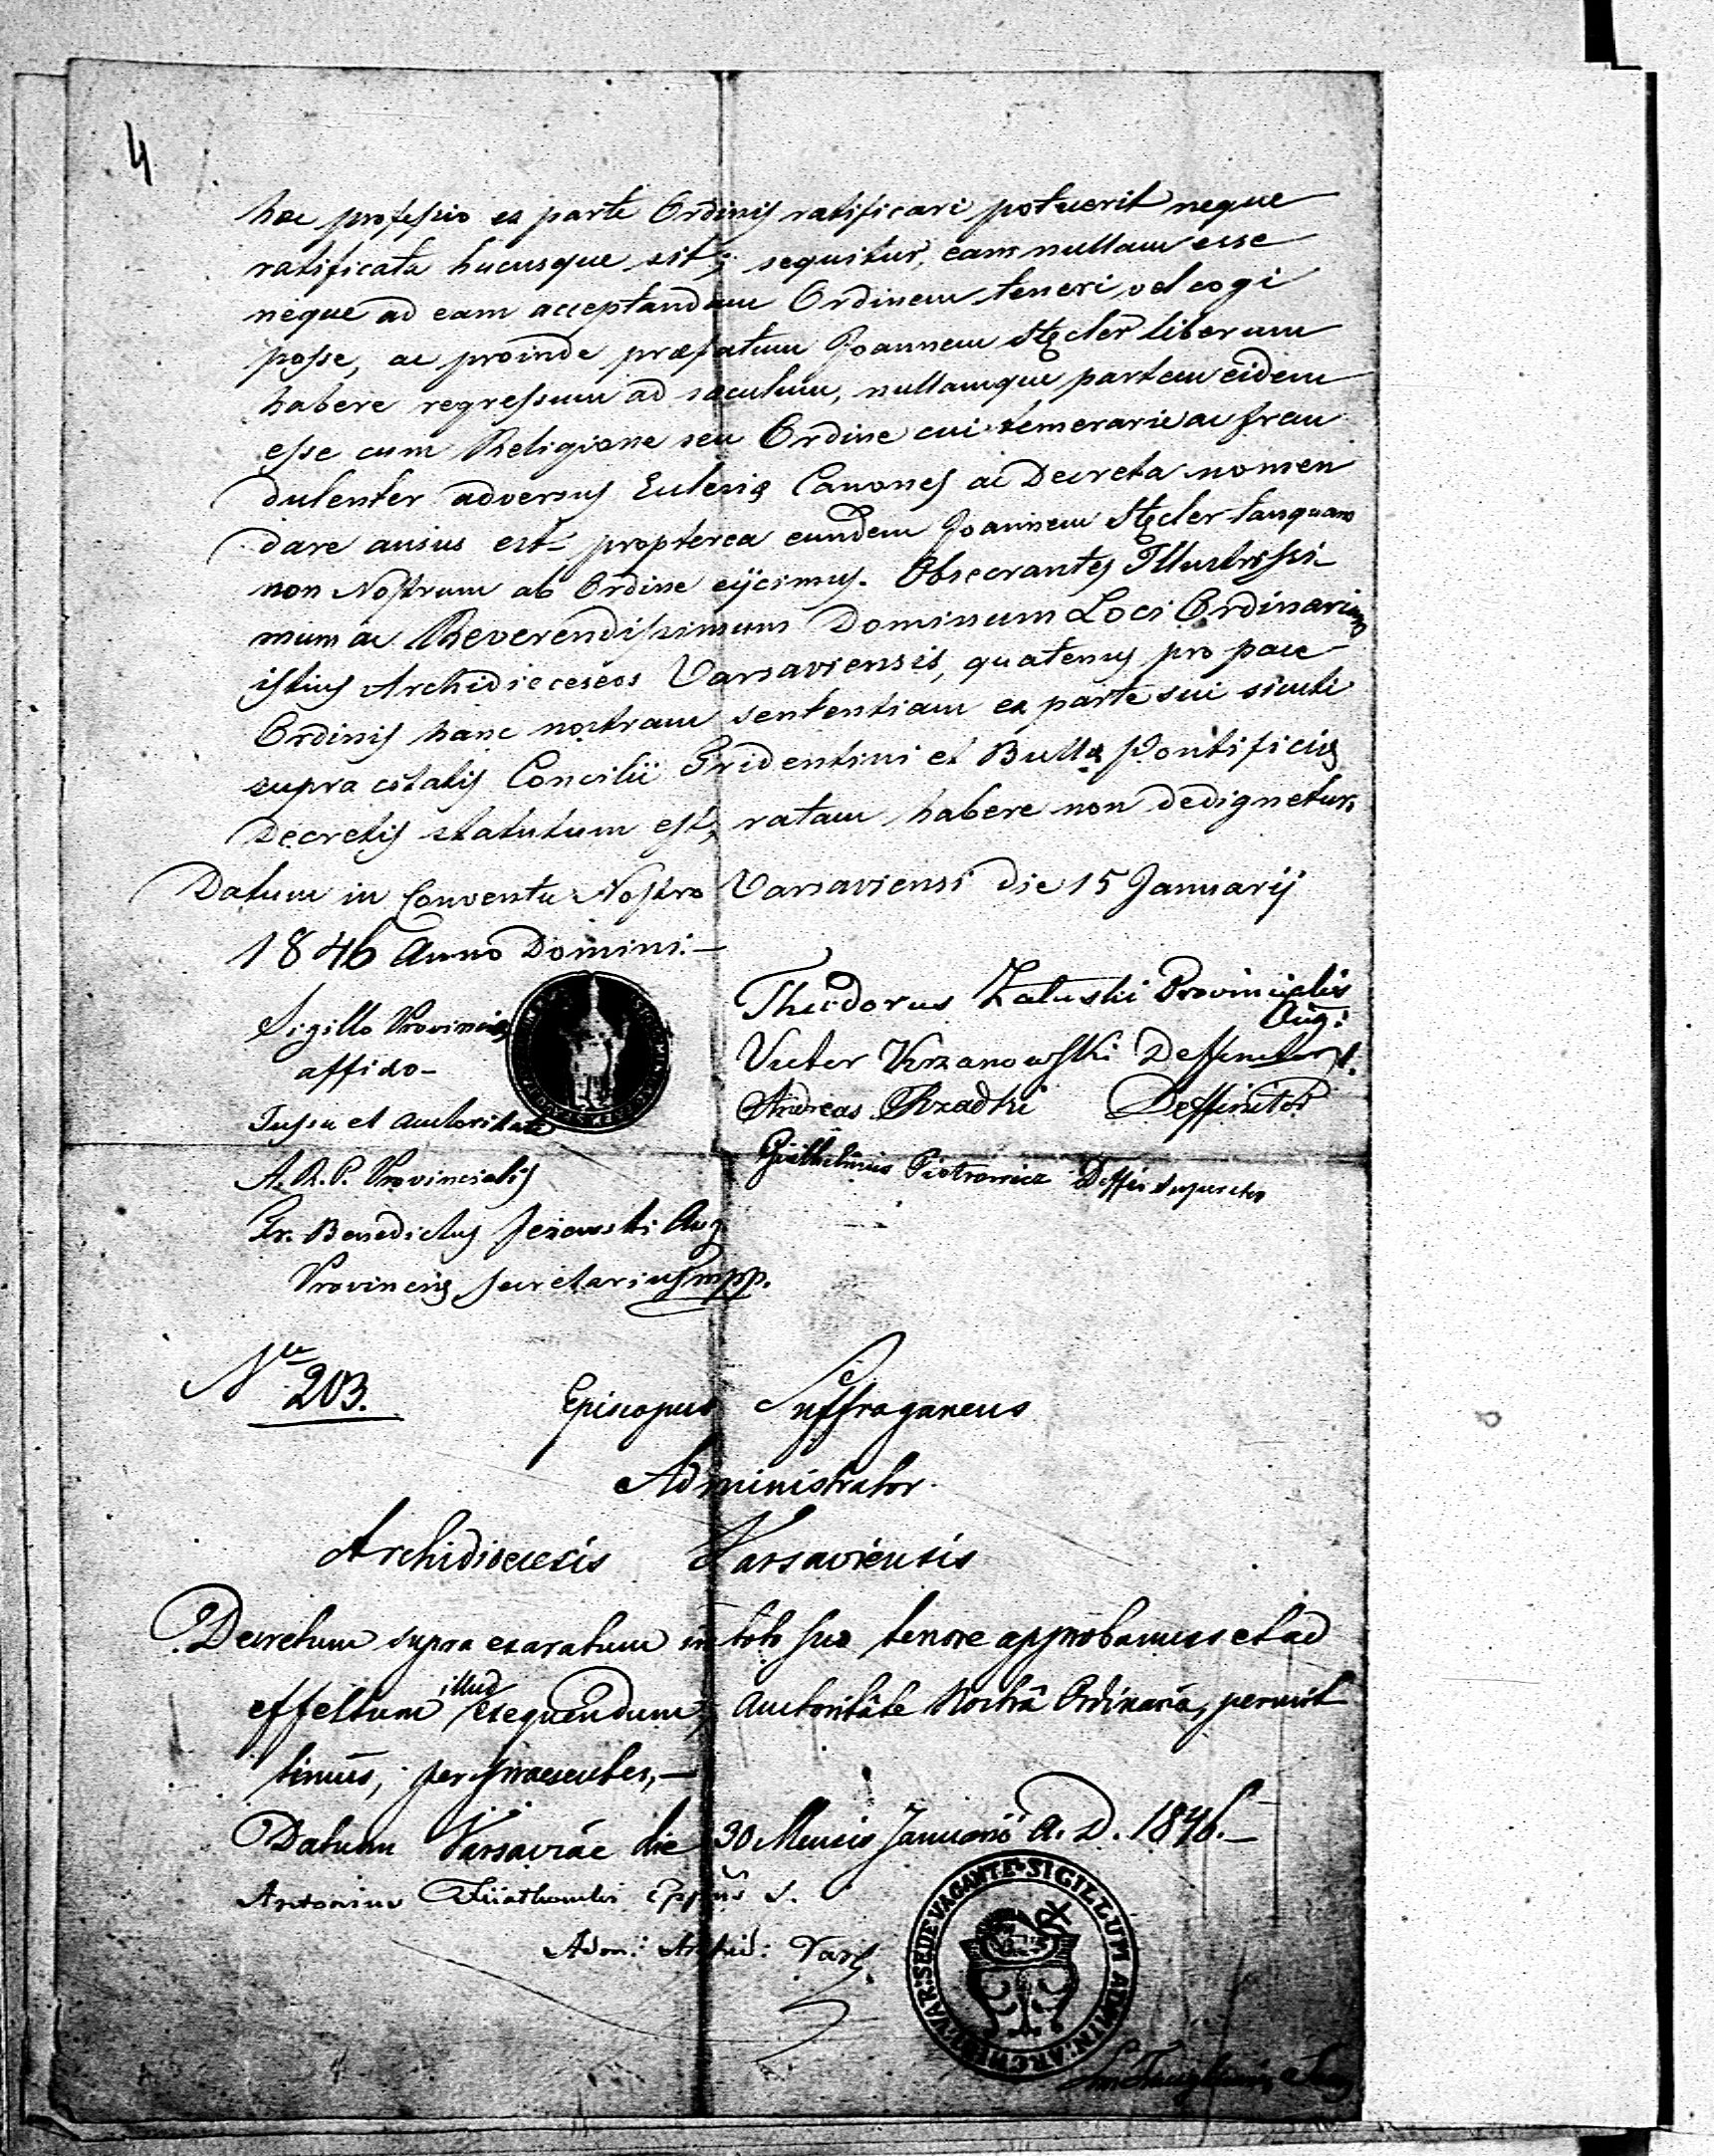 4
hæc professio ex parte Ordinis ratificari potuerit neque
ratificata hucusque sit; sequitur, eam nullam esse
neque ad eam acceptandam Ordinem teneri, vel cogi
posse, ac proinde præfatum Joannem Stęcler liberum
habere regressum ad sæculum, nullamque partem eidem
esse cum Religione seu Ordine cui temerarie ac frau
dulenter adversus Eclesię Canones ac Decreta nomen
dare ausus est propterea eundem Joannem Stęcler tanquam
non Nostrum ab Ordine eijcimus. Obsecrantes Illustrissi-
mum ac Reverendissimum Dominum Loci Ordinarium
istius Archidieceseos Varsaviensis, quatenus pro pace
Ordinis hanc nostram sententiam ex parte sui sicuti
supra citatis Concilii Tridentini et Bullę Pontificię
Decretis statutum est, ratam habere non dedignetur.
Datum in Conventu Nostro Varsaviensi die 15 Januarij
1846 Anno Domini.—
Sigillo Provincię
affixo-
Theodorus Załuski Provincialis
Aug:
Victor Krzanowski Deffinitor
Andreas Rządki Deffinitor
Jussu et authoritate
Guilhelmus Piotrowicz Deffi:
A. R. P. Provincialis
Fr. Benedictus Jezewski Aug
Provincię Secretarius mpp.
N 203.
Episcopus Suffraganeus
Administrator
Archidioecesis Varsaviensis
Decretum supra exaratum in toto suo tenore approbamus et ad
effectum illud exequendum, auctoritâte Nostrâ Ordinariâ, permit
timus, per praesentes,—
Datum Varsaviae die 30 Mensis Januarii A. D. 1846.—
Antonius Eppus S.
Adm: Archid: Vars.
SIGILLUM ADMIN: ARCHID: VAR: SEDE VACANTE